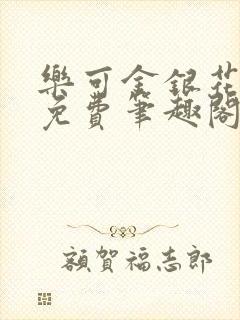 樂可金銀花
免費筆趣閣
額賀福志郎